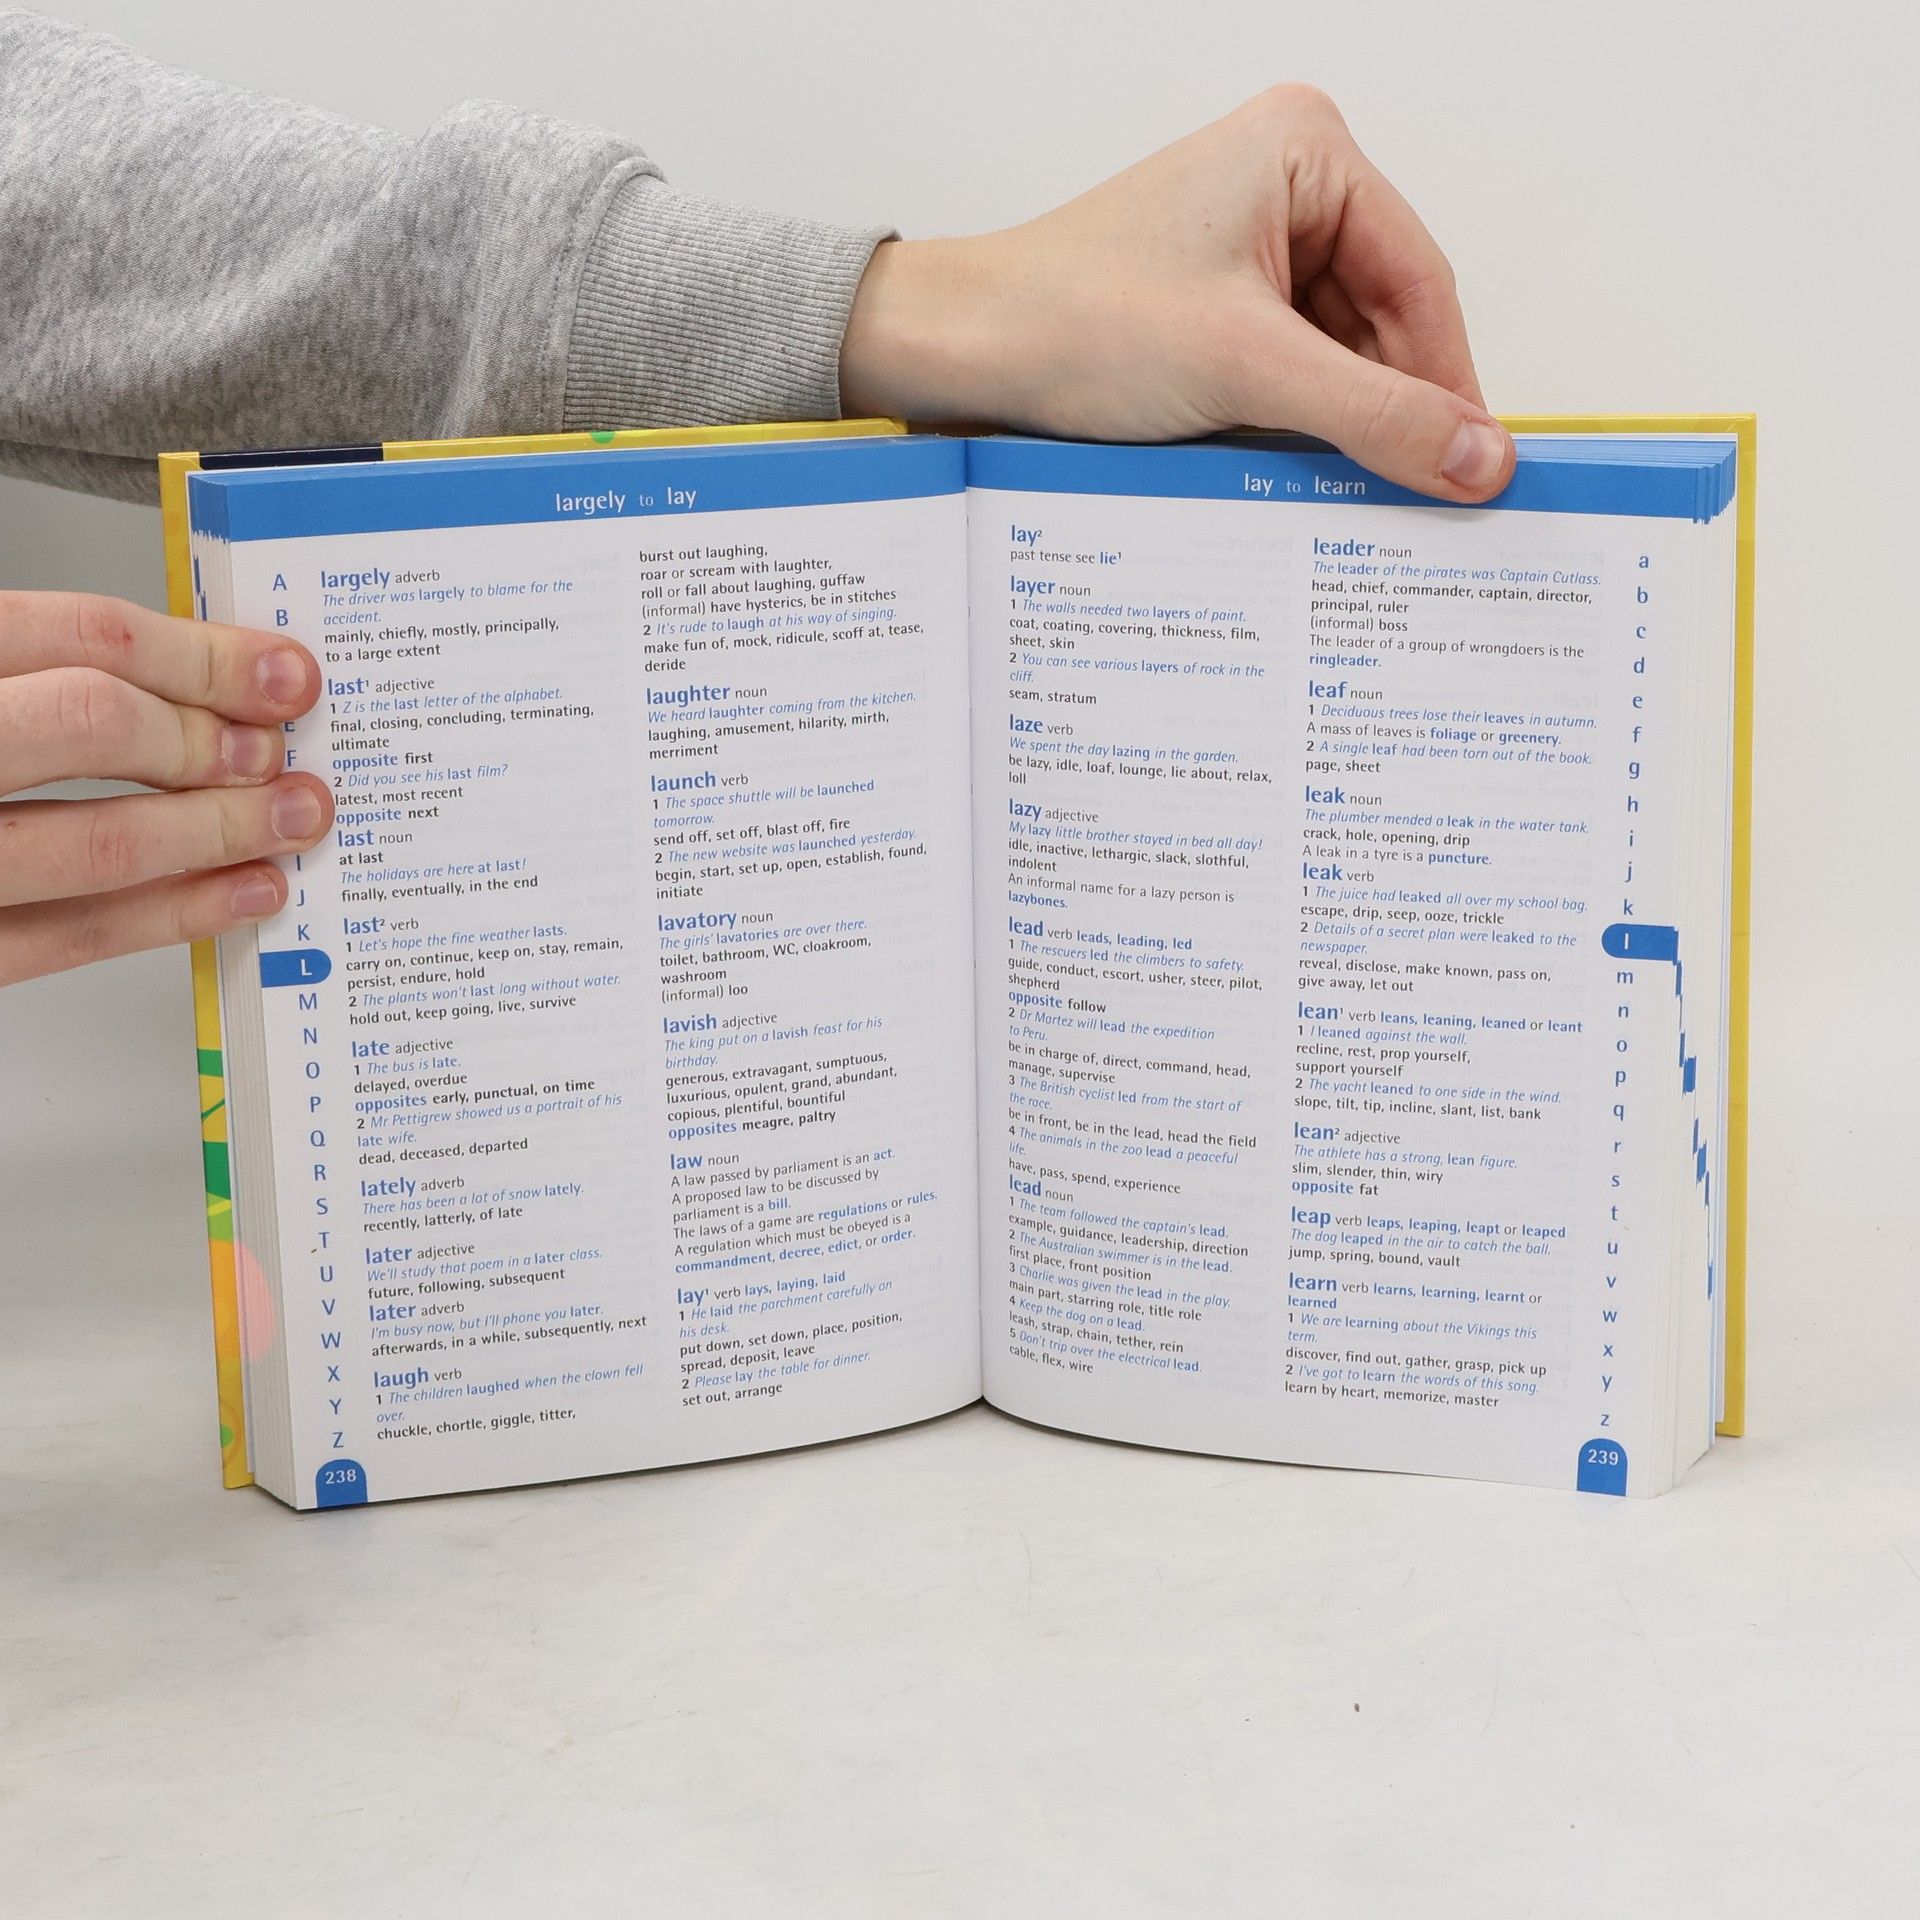 largely to lay
A
B
E
F
I
J
K
L
M
N
O
P
Q
R
S
T
U
V
W
X
Y
Z
238
largely adverb
The driver was largely to blame for the
accident.
mainly, chiefly, mostly, principally,
to a large extent
last¹ adjective
1 Z is the last letter of the alphabet.
final, closing, concluding, terminating,
ultimate
opposite first
2 Did you see his last film?
latest, most recent
opposite next
last noun
at last
The holidays are here at last!
finally, eventually, in the end
last² verb
1 Let's hope the fine weather lasts.
carry on, continue, keep on, stay, remain,
persist, endure, hold
2 The plants won't last long without water.
hold out, keep going, live, survive
late adjective
1 The bus is late.
delayed, overdue
opposites early, punctual, on time
2 Mr Pettigrew showed us a portrait of his
late wife.
dead, deceased, departed
lately adverb
There has been a lot of snow lately.
recently, latterly, of late
later adjective
We'll study that poem in a later class.
future, following, subsequent
later adverb
I'm busy now, but I'll phone you later.
afterwards, in a while, subsequently, next
laugh verb
1 The children laughed when the clown fell
over.
chuckle, chortle, giggle, titter,
burst out laughing,
roar or scream with laughter,
roll or fall about laughing, guffaw
(informal) have hysterics, be in stitches
2 It's rude to laugh at his way of singing.
make fun of, mock, ridicule, scoff at, tease,
deride
laughter noun
We heard laughter coming from the kitchen.
laughing, amusement, hilarity, mirth,
merriment
launch verb
1 The space shuttle will be launched
tomorrow.
send off, set off, blast off, fire
2 The new website was launched yesterday.
begin, start, set up, open, establish, found,
initiate
lavatory noun
The girls' lavatories are over there.
toilet, bathroom, WC, cloakroom,
washroom
(informal) loo
lavish adjective
The king put on a lavish feast for his
birthday.
generous, extravagant, sumptuous,
luxurious, opulent, grand, abundant,
copious, plentiful, bountiful
opposites meagre, paltry
law noun
A law passed by parliament is an act.
A proposed law to be discussed by
parliament is a bill.
The laws of a game are regulations or rules.
A regulation which must be obeyed is a
commandment, decree, edict, or order.
lay¹ verb lays, laying, laid
1 He laid the parchment carefully on
his desk.
put down, set down, place, position,
spread, deposit, leave
2 Please lay the table for dinner.
set out, arrange
lay to learn
lay²
past tense see lie¹
layer noun
1 The walls needed two layers of paint.
coat, coating, covering, thickness, film,
sheet, skin
2 You can see various layers of rock in the
cliff.
seam, stratum
laze verb
We spent the day lazing in the garden.
be lazy, idle, loaf, lounge, lie about, relax,
loll
lazy adjective
My lazy little brother stayed in bed all day!
idle, inactive, lethargic, slack, slothful,
indolent
An informal name for a lazy person is
lazybones.
lead verb leads, leading, led
1 The rescuers led the climbers to safety.
guide, conduct, escort, usher, steer, pilot,
shepherd
opposite follow
2 Dr Martez will lead the expedition
to Peru.
be in charge of, direct, command, head,
manage, supervise
3 The British cyclist led from the start of
the race.
be in front, be in the lead, head the field
4 The animals in the zoo lead a peaceful
life.
have, pass, spend, experience
lead noun
1 The team followed the captain's lead.
example, guidance, leadership, direction
2 The Australian swimmer is in the lead.
first place, front position
3 Charlie was given the lead in the play.
main part, starring role, title role
4 Keep the dog on a lead.
leash, strap, chain, tether, rein
5 Don't trip over the electrical lead.
cable, flex, wire
leader noun
The leader of the pirates was Captain Cutlass.
head, chief, commander, captain, director,
principal, ruler
(informal) boss
The leader of a group of wrongdoers is the
ringleader.
leaf noun
1 Deciduous trees lose their leaves in autumn.
A mass of leaves is foliage or greenery.
2 A single leaf had been torn out of the book.
page, sheet
leak noun
The plumber mended a leak in the water tank.
crack, hole, opening, drip
A leak in a tyre is a puncture.
leak verb
1 The juice had leaked all over my school bag.
escape, drip, seep, ooze, trickle
2 Details of a secret plan were leaked to the
newspaper.
reveal, disclose, make known, pass on,
give away, let out
lean¹ verb leans, leaning, leaned or leant
1 I leaned against the wall.
recline, rest, prop yourself,
support yourself
2 The yacht leaned to one side in the wind.
slope, tilt, tip, incline, slant, list, bank
lean² adjective
The athlete has a strong, lean figure.
slim, slender, thin, wiry
opposite fat
leap verb leaps, leaping, leapt or leaped
The dog leaped in the air to catch the ball.
jump, spring, bound, vault
learn verb learns, learning, learnt or
learned
1 We are learning about the Vikings this
term.
discover, find out, gather, grasp, pick up
2 I've got to learn the words of this song.
learn by heart, memorize, master
a
b
c
d
e
f
g
h
i
j
k
l
m
n
o
p
q
r
s
t
u
v
w
x
y
z
239